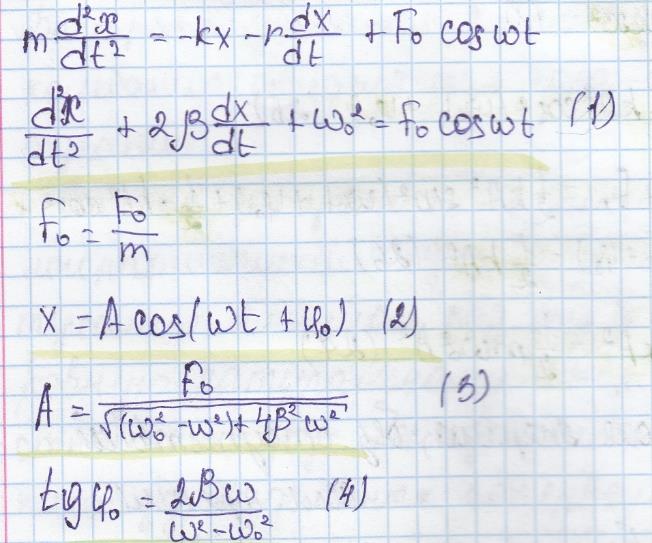 m d²x/dt² = -kx - r dx/dt + F₀ cos ωt
d²x/dt² + 2β dx/dt + ω₀² = f₀ cos ωt (1)
f₀ = F₀/m
x = A cos(ωt + φ₀) (2)
A = F₀/√((ω₀² - ω²) + 4β²ω²) (3)
tg φ₀ = 2βω/(ω² - ω₀²) (4)